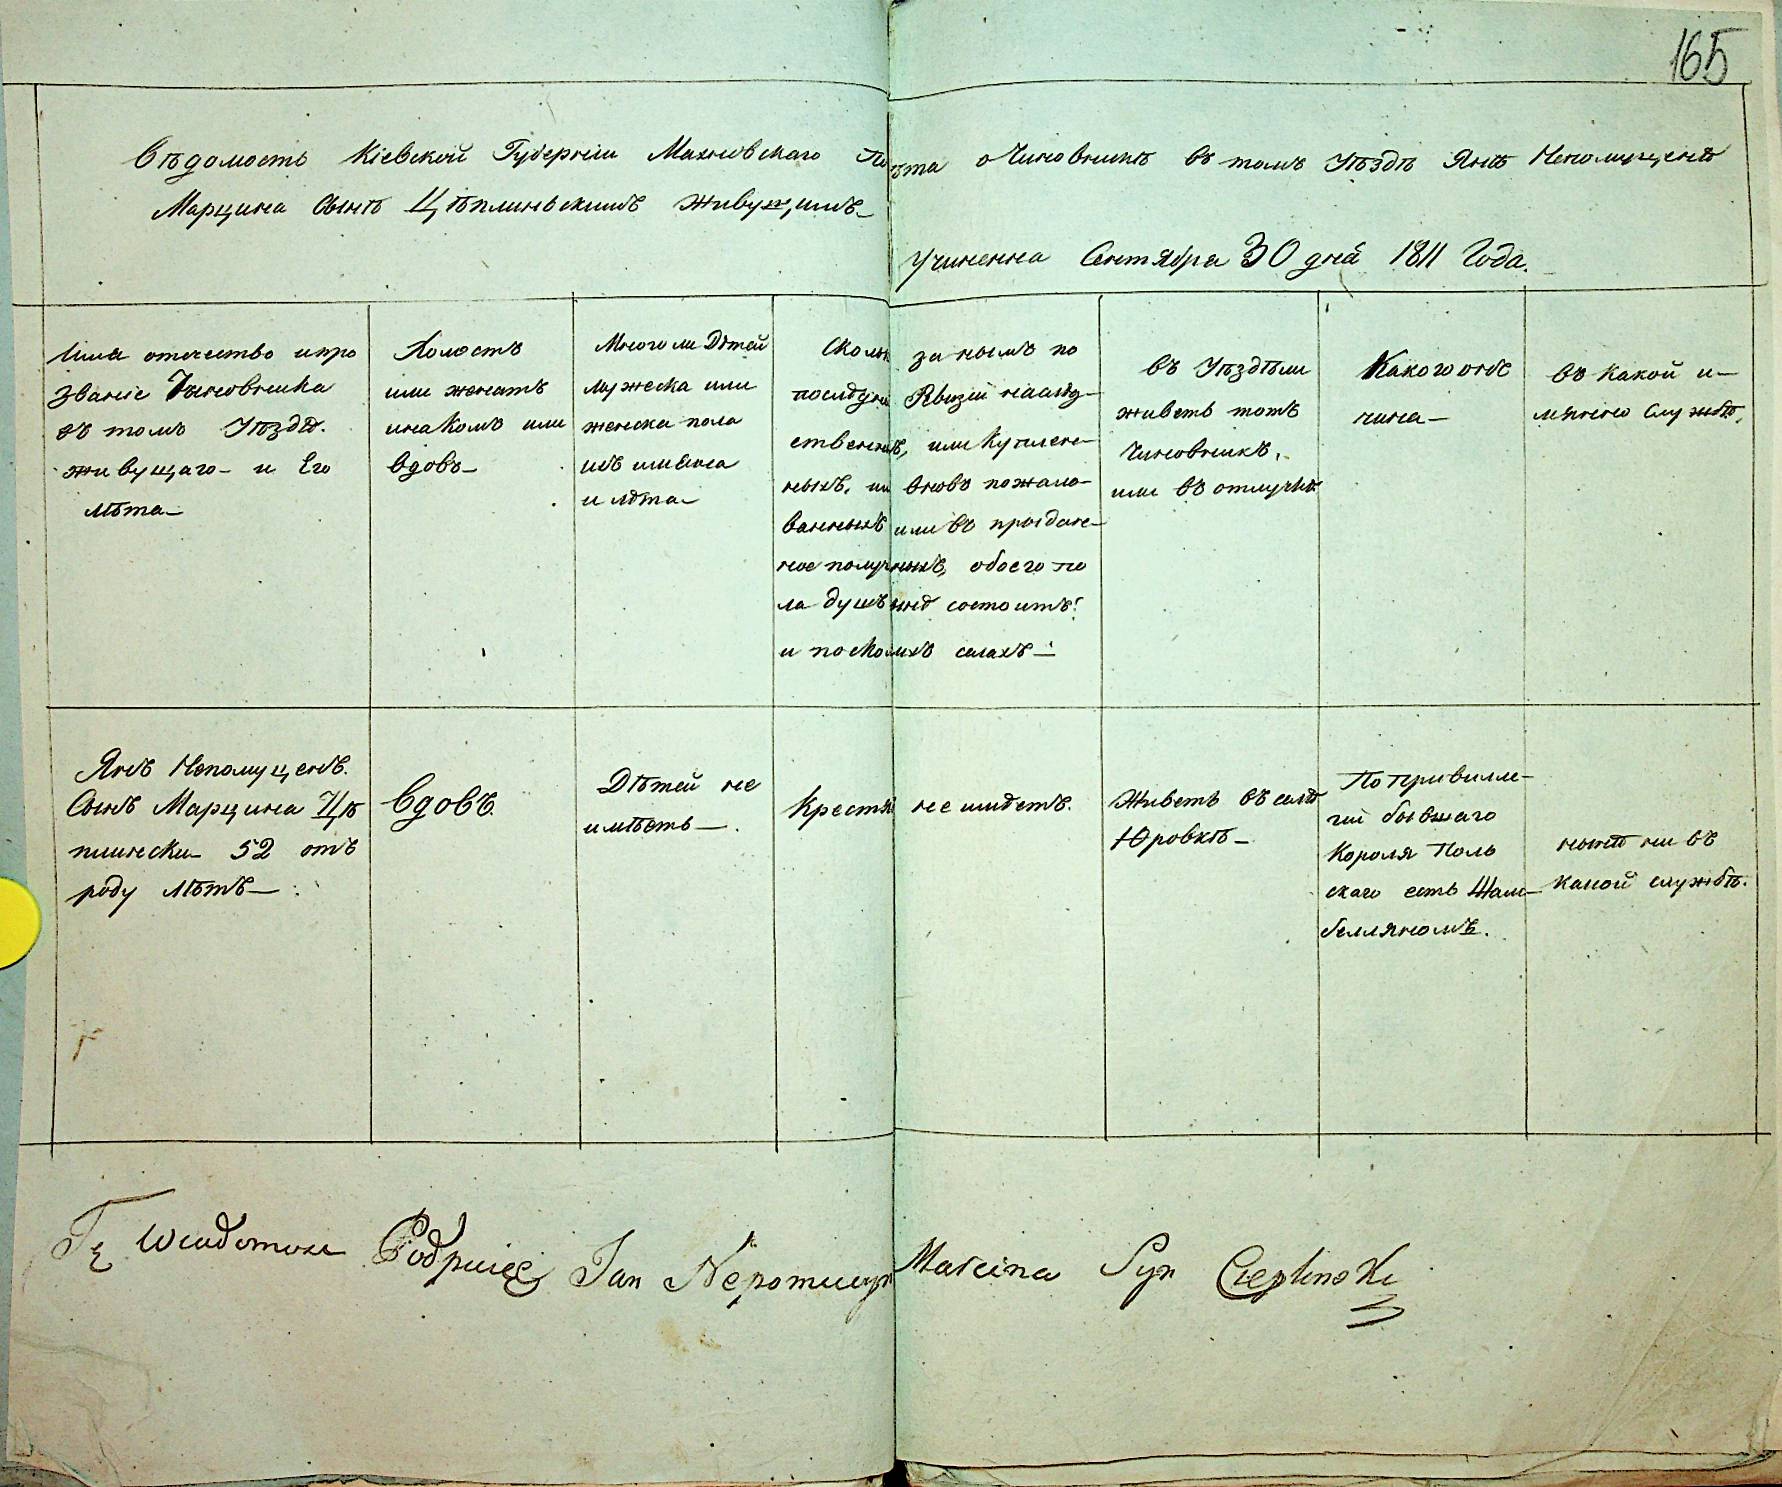 165
Вѣдомость Кіевской Губерніи Махновскаго По вѣта о Чиновникѣ въ томъ Уѣздѣ Янѣ Непомуценѣ
Марцина Сынѣ Цѣплиньскимъ живущимъ
Учиненна Сентября 30 дня 1811 Года.
Имя отечество и про
званіе Чиновника
въ томъ Уѣздѣ
живущаго и Его
лѣта
Холостъ
или женатъ
и на комъ или
вдовъ
Много ли Дѣтей
мужеска или
женска пола
ихъ имена
и лѣта
Сколько за нымъ по
послѣдней Ревизіи наслѣд-
ственныхъ, или куплен-
ныхъ, или вновь пожало-
ванныхъ или въ придан-
ное полученныхъ, обоего по
ла душъ состоитъ!
и по скольихъ селахъ
въ Уѣздѣ ли
живетъ тотъ
Чиновникъ,
или въ отлучкѣ
Какого онъ
чина
въ какой и-
мянно службѣ,
Янъ Непомуценъ.
Сынъ Марцина Цѣ
плински 52 отъ
роду лѣтъ
Вдовъ.
Дѣтей не
имѣетъ
Крестьян не имѣетъ.
Живетъ въ селѣ
Юровкѣ
По привилле-
гіи бывшаго
Короля Поль
скаго есть Шам-
белляномъ.
нынѣ ни въ
какой службѣ.
Tę Wiedomość Podpisuię Jan Nepomucyn Marcina Syn Cieplinski